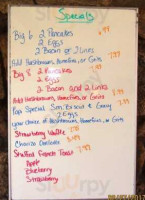 Specials
Big 6 2 Pancakes 6.99
2 Eggs
2 Bacon or 2 Links
Add Hashbrowns, Homefries, or Grits
Big 8 2 Pancakes 7.99
2 Eggs
2 Bacon and 2 Links
Add Hashbrowns, Homefries, or Grits
Special Biscuit & Gravy
2 Eggs
your choice of Hashbrowns, Homefries, or Grits
Strawberry Waffle
Stuffed French Toast
Apple
Blueberry
Strawberry